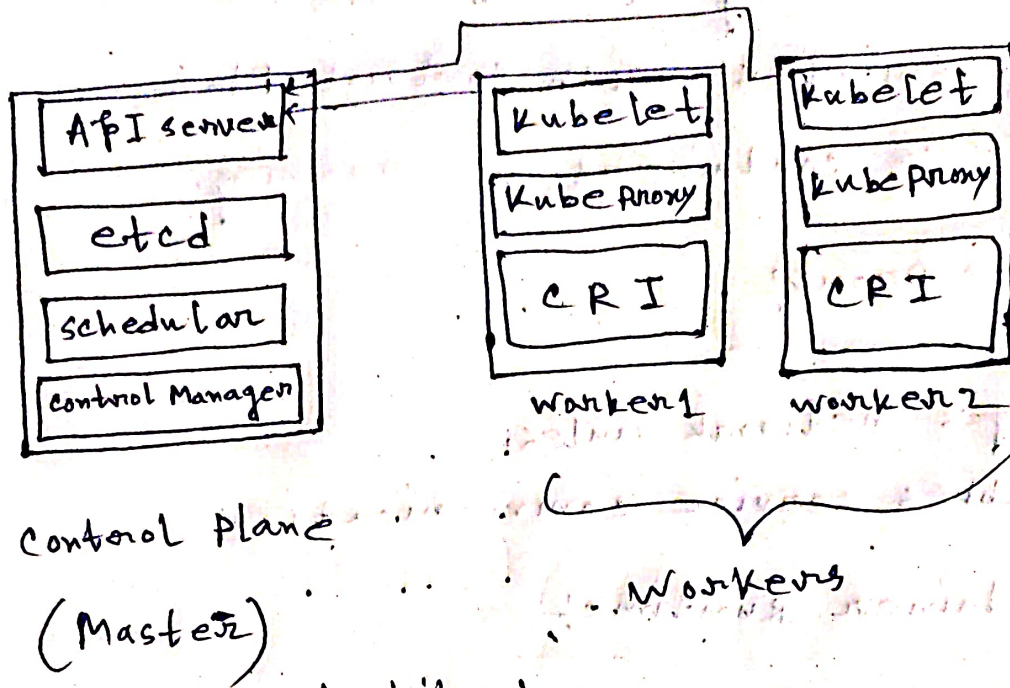 API server
etcd
schedular
control Manager
Control Plane
(Master)
Kubelet
Kube Proxy
CRI
Worker1
Kubelet
Kube Proxy
CRI
Worker2
Workers